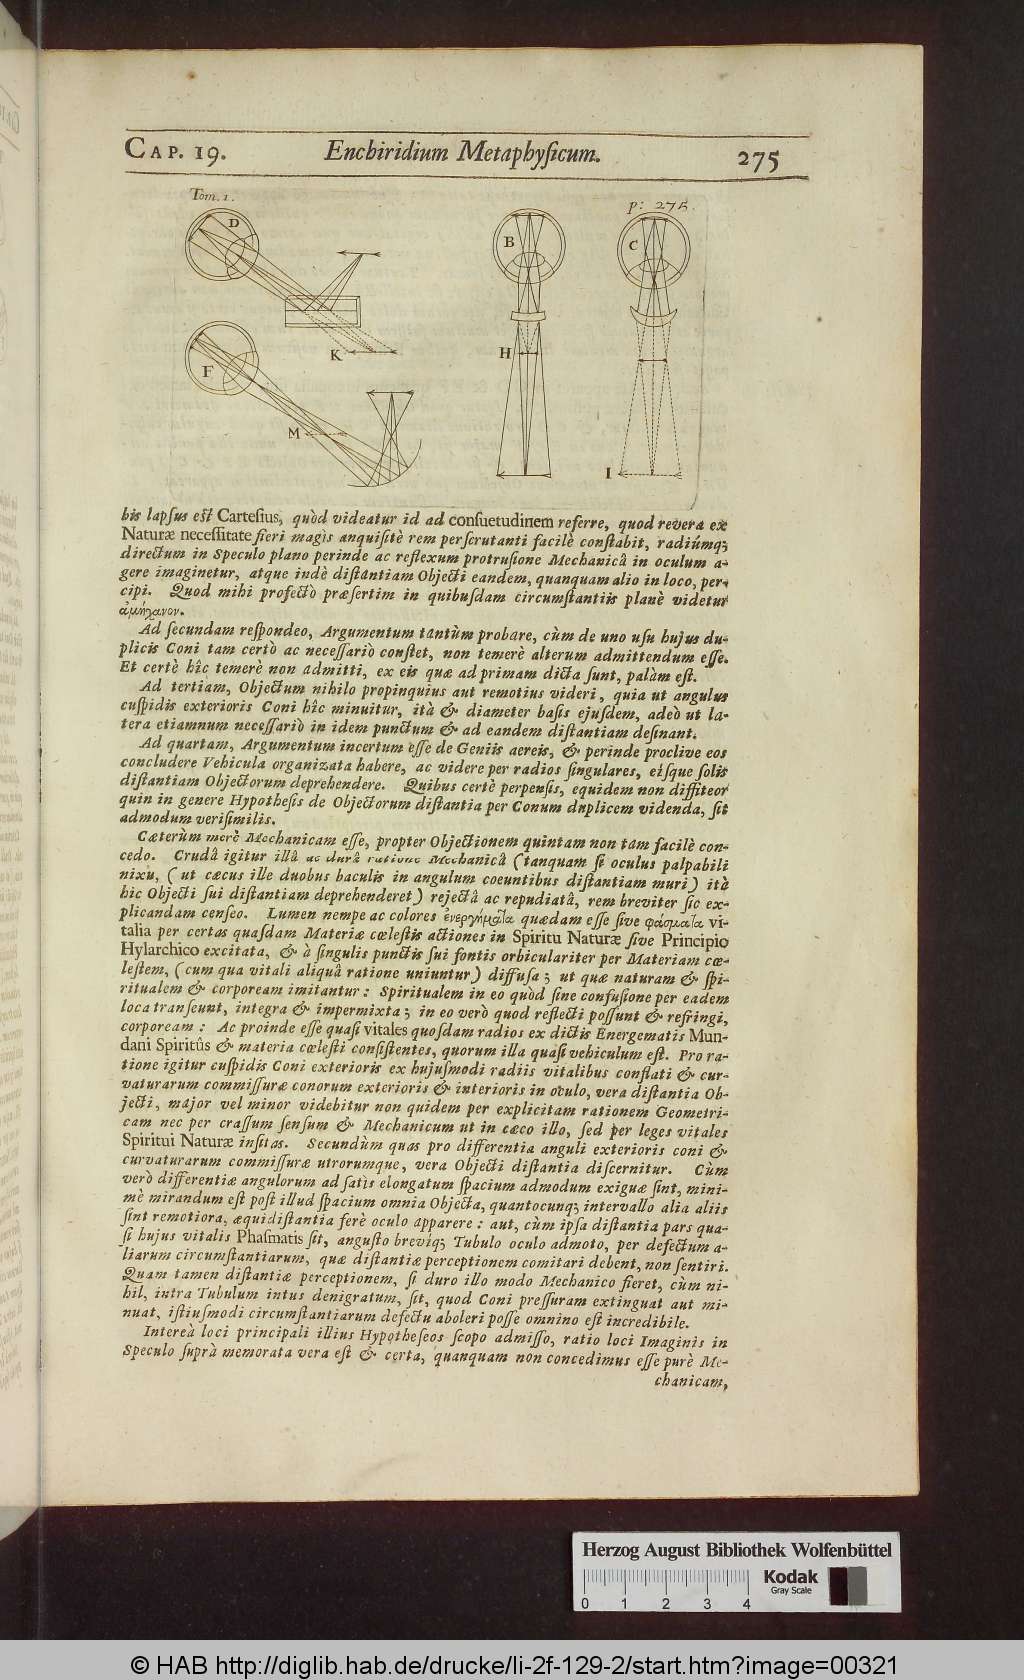 CAP. 19. Enchiridium Metaphyſicum. 275
Tom. 1. p: 275.
D
B
C
K
H
F
M
I
his lapſus eſt Carteſius, quòd videatur id ad conſuetudinem referre, quod revera ex
Naturæ neceſſitate fieri magìs anquiſitè rem perſcrutanti facilè conſtabit, radiúmq;
directum in Speculo plano perinde ac reflexum protruſione Mechanicâ in oculum a-
gere imaginetur, atque indè diſtantiam Objecti eandem, quanquam alio in loco, per-
cipi. Quod mihi profectò præſertim in quibuſdam circumſtantiis planè videtur
ἀμήχανον.
Ad ſecundam reſpondeo, Argumentum tantùm probare, cùm de uno uſu hujus du-
plicis Coni tam certò ac neceſſariò conſtet, non temerè alterum admittendum eſſe.
Et certè hîc temerè non admitti, ex eis quæ ad primam dicta ſunt, palàm eſt.
Ad tertiam, Objectum nihilo propinquius aut remotius videri, quia ut angulus
cuſpidis exterioris Coni hîc minuitur, ità & diameter baſis ejuſdem, adeò ut la-
tera etiamnum neceſſariò in idem punctum & ad eandem diſtantiam deſinant.
Ad quartam, Argumentum incertum eſſe de Geniis aereis, & perinde proclive eos
concludere Vehicula organizata habere, ac videre per radios ſingulares, eiſque ſolis
diſtantiam Objectorum deprehendere. Quibus certè perpenſis, equidem non diffiteor
quin in genere Hypotheſis de Objectorum diſtantia per Conum duplicem videnda, ſit
admodum veriſimilis.
Cæterùm merè Mechanicam eſſe, propter Objectionem quintam non tam facilè con-
cedo. Crudâ igitur illâ ac durâ ratione Mechanicâ (tanquam ſi oculus palpabili
nixu, (ut cæcus ille duobus baculis in angulum coeuntibus diſtantiam muri) ità
hic Objecti ſui diſtantiam deprehenderet) rejectâ ac repudiatâ, rem breviter ſic ex-
plicandam cenſeo. Lumen nempe ac colores ἐνεργήματα quædam eſſe ſive φάσματα vi-
talia per certas quaſdam Materiæ cœleſtis actiones in Spiritu Naturæ ſive Principio
Hylarchico excitata, & à ſingulis punctis ſui fontis orbiculariter per Materiam cœ-
leſtem, (cum qua vitali aliquâ ratione uniuntur) diffuſa; ut quæ naturam & ſpi-
ritualem & corpoream imitantur: Spiritualem in eo quòd ſine confuſione per eadem
loca tranſeunt, integra & impermixta; in eo verò quod reflecti poſſunt & refringi,
corpoream: Ac proinde eſſe quaſi vitales quoſdam radios ex dictis Energematis Mun-
dani Spiritûs & materia cœleſti conſiſtentes, quorum illa quaſi vehiculum eſt. Pro ra-
tione igitur cuſpidis Coni exterioris ex hujuſmodi radiis vitalibus conflati & cur-
vaturarum commiſſuræ conorum exterioris & interioris in oculo, vera diſtantia Ob-
jecti, major vel minor videbitur non quidem per explicitam rationem Geometri-
cam nec per craſſum ſenſum & Mechanicum ut in cæco illo, ſed per leges vitales
Spiritui Naturæ inſitas. Secundùm quas pro differentia anguli exterioris coni &
curvaturarum commiſſuræ utrorumque, vera Objecti diſtantia diſcernitur. Cùm
verò differentiæ angulorum ad ſatìs elongatum ſpacium admodum exiguæ ſint, mini-
mè mirandum eſt poſt illud ſpacium omnia Objecta, quantocunq; intervallo alia aliis
ſint remotiora, æquidiſtantia ferè oculo apparere: aut, cùm ipſa diſtantia pars qua-
ſi hujus vitalis Phaſmatis ſit, anguſto brevíq; Tubulo oculo admoto, per defectum a-
liarum circumſtantiarum, quæ diſtantiæ perceptionem comitari debent, non ſentiri.
Quam tamen diſtantiæ perceptionem, ſi duro illo modo Mechanico fieret, cùm ni-
hil, intra Tubulum intus denigratum, ſit, quod Coni preſſuram extinguat aut mi-
nuat, iſtiuſmodi circumſtantiarum defectu aboleri poſſe omnino eſt incredibile.
Intereà loci principali illius Hypotheſeos ſcopo admiſſo, ratio loci Imaginis in
Speculo ſuprà memorata vera eſt & certa, quanquam non concedimus eſſe purè Me-
chanicam,
Herzog August Bibliothek Wolfenbüttel
Kodak
Gray Scale
0 1 2 3 4
© HAB http://diglib.hab.de/drucke/li-2f-129-2/start.htm?image=00321